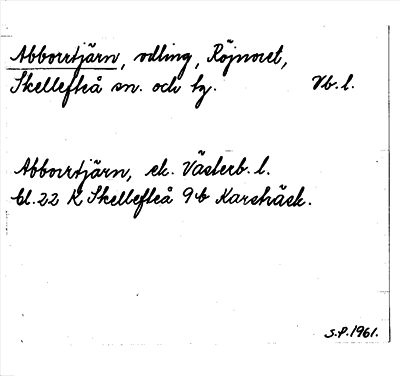 Abborrtjärn, odling, Röjnoret,
Skellefteå sn. och tg. Vb. l.
Abborrtjärn, ek. Västerb. l.
bl. 22 K Skellefteå 9b Karsträsk.
S.P. 1961.